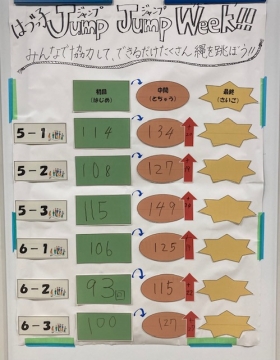 はづっ子 JUMP JUMP WEEK!!!
ジャンプ ジャンプ
みんなで協力して、できるだけたくさん縄を跳ぼう!!
初回 (はじめ) 中間 (とちゅう) 最終 (さいご)
5-1 114 134
5-2 108 127
5-3 115 149
6-1 106 125
6-2 93回 115
6-3 100 127